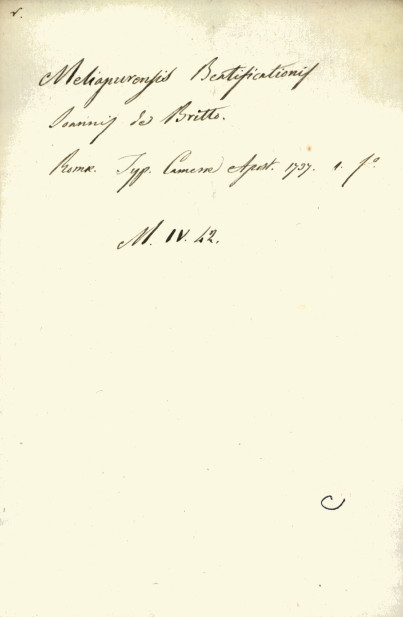 v.
Meliapurensis Beatificationis
Joannis de Britto.
Romæ. Typ. Cameræ Apost. 1737. 1. fo.
M. IV. 42.
C